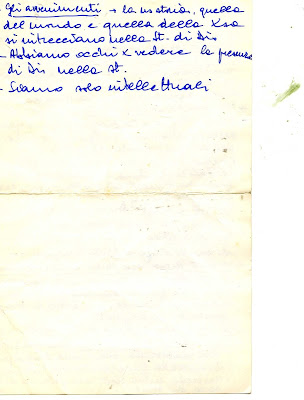 Gli avvenimenti → la ns storia, quella
del mondo e quella della Xsa
si intrecciano nella St. di Dio
- Abbiamo occhi x vedere la presenza
di Dio nella st.
- Siamo solo intellettuali